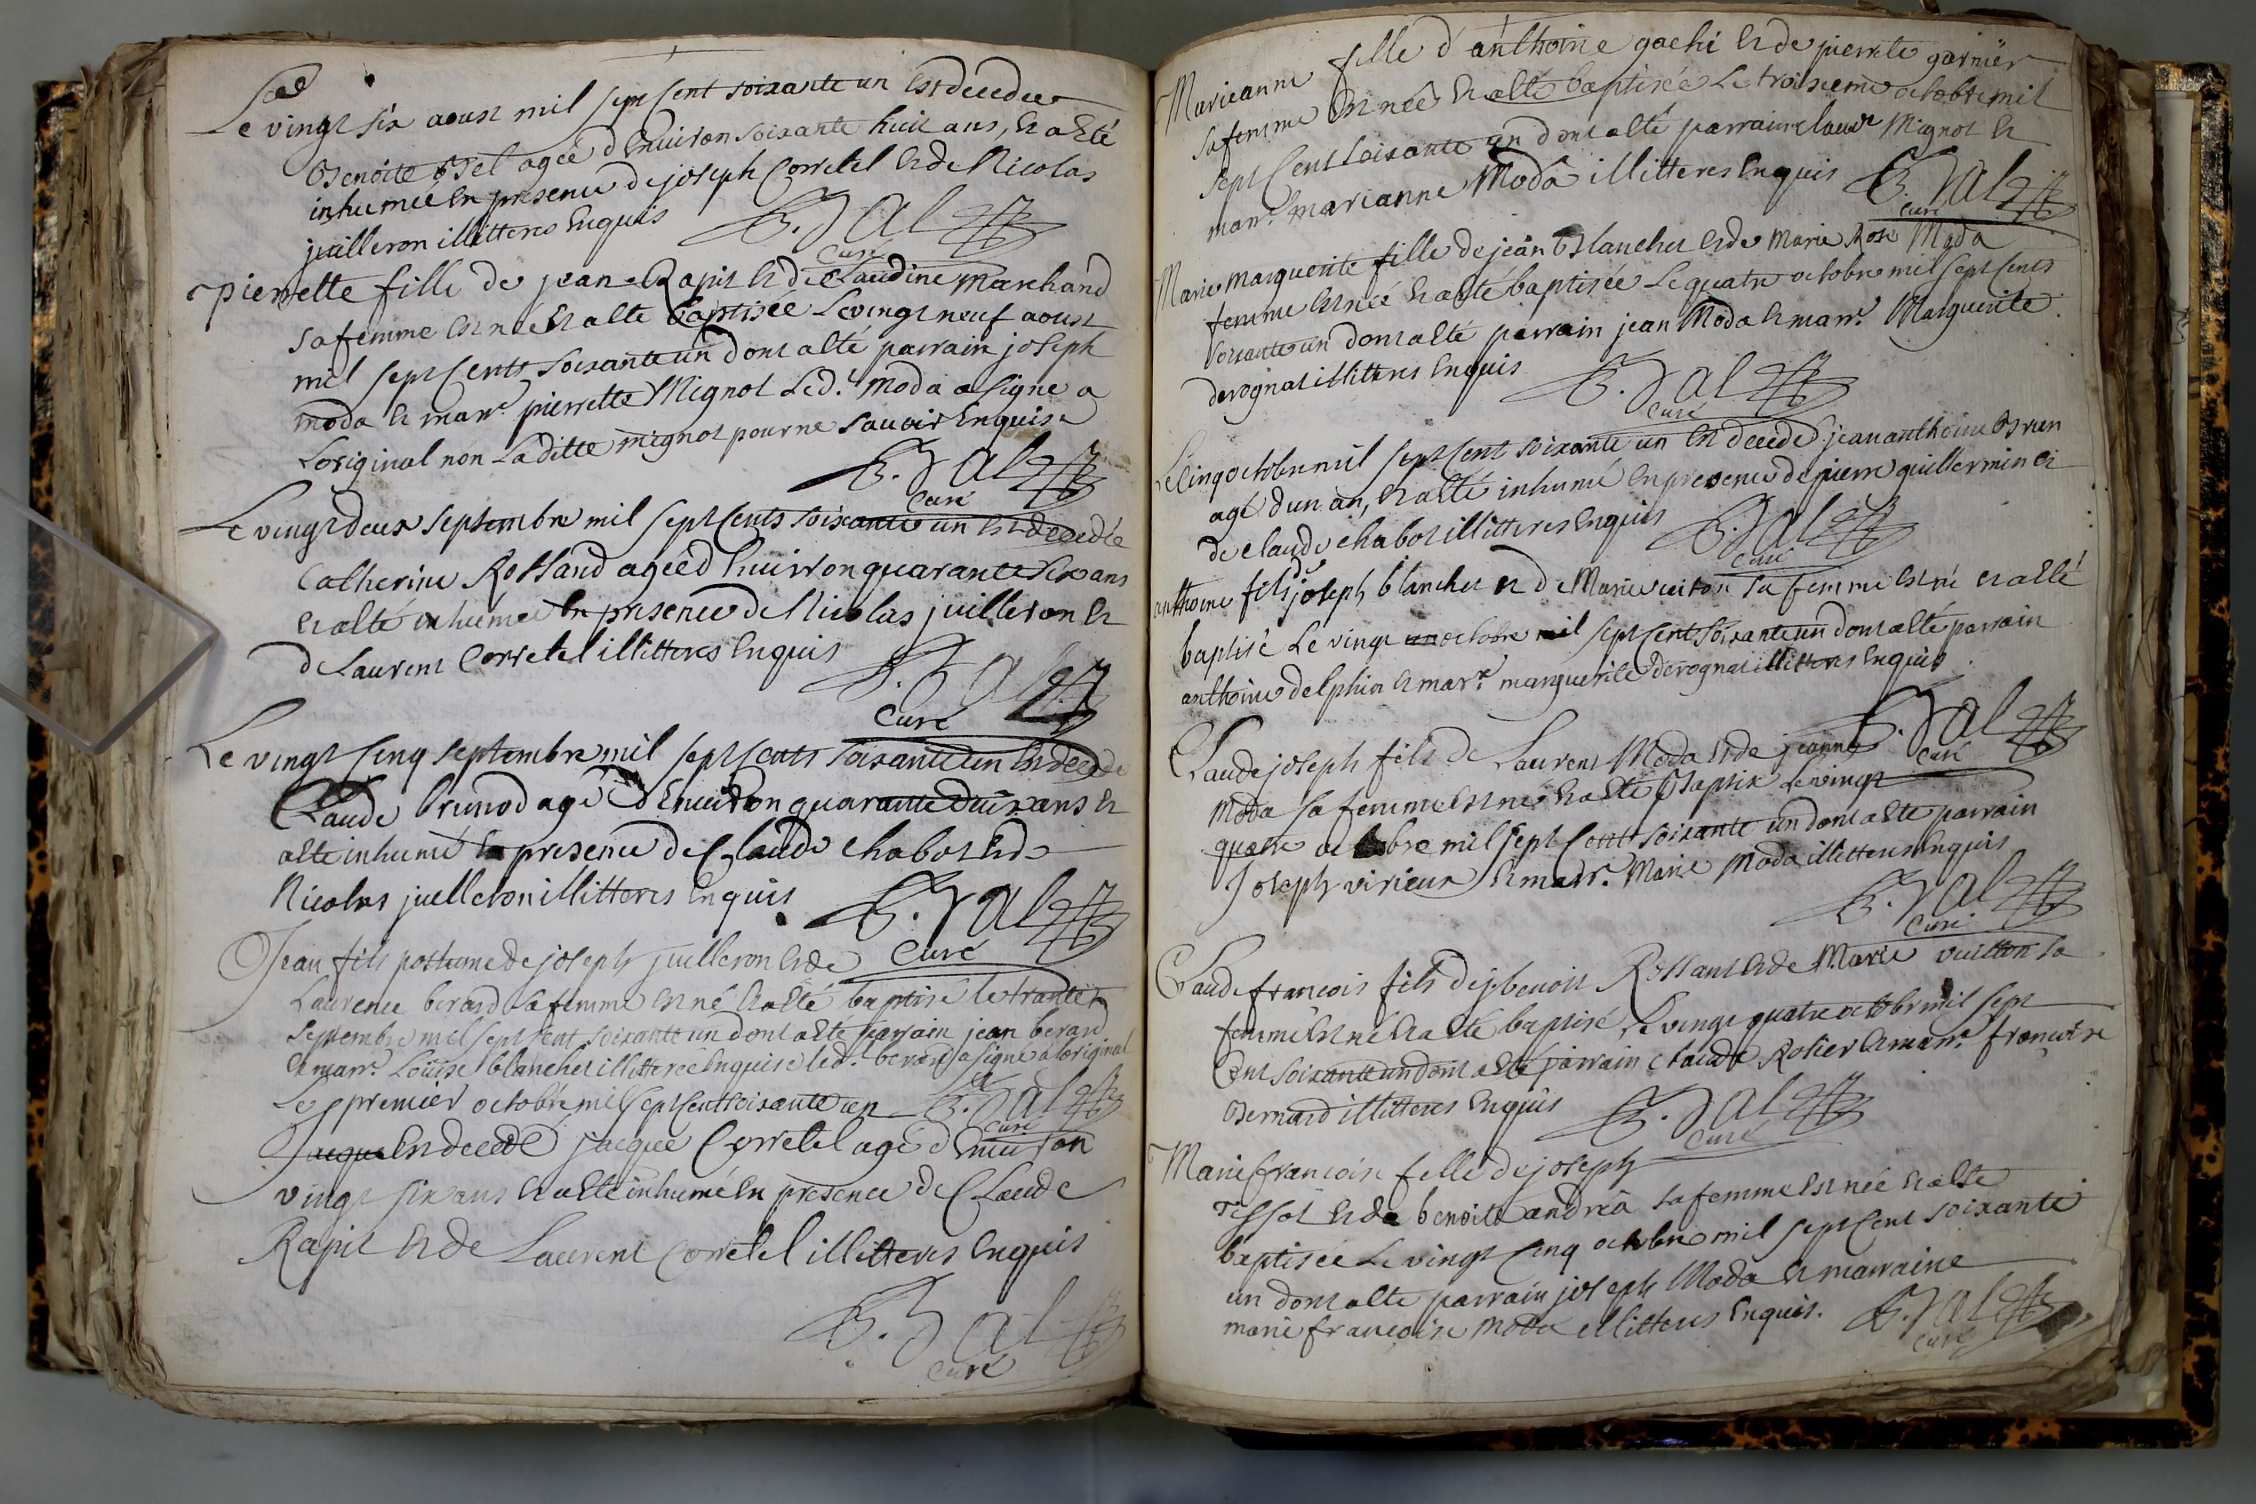 Le vingt six aoust mil sept Cent soixante un Est decedee
Benoite agée d Enuiron soixante huit ans, Et a Eté
inhumée En presence de joseph Corretel Et de Nicolas
juilleron illitteres Enquis
B. Jal
Curé
pierrette fille de jean Rapit Et de Claudine Marchand
sa femme Est née Et a Eté baptisée Le vingt neuf aoust
mil sept Cents soixante un dont a Eté parrain joseph
moda Et marr.e pierrette Mignot Led.t moda a signe a
Loriginal non Laditte mignot pour ne sauoir Enquise
B. Jal
Curé
Le vingt deux septembre mil sept Cents soixante un Est decedée
Catherine Rolland ageé d Enuiron quarante six ans
Et a Eté inhumée En presence de Nicolas juilleron Et
de Laurent Corretel illitteres Enquis
B. Jal
Curé
Le vingt Cinq septembre mil sept Cents soixante un Est decede
Claude brunod agé d Enuiron quarante ans Et
a Eté inhumé En presence de Claude chabot Et de
Nicolas juilleron illitteres Enquis
B. Jal
Curé
Jean fils postume de joseph juilleron Et de
Laurence berard sa femme Est né Et a Eté baptisé le trante
septembre mil sept Cent soixante un dont a Eté parrain jean berard
Et marr.e Loüise blanchet illitterée Enquise led.t berard a signé a loriginal
B. Jal
Curé
Le premier octobre mil sept Cent soixante un
Jacque Est decedé jacque Corretel agé d Enuiron
vingt six ans Et a Eté inhumé En presence de Claude
Rapit Et de Laurent Corretel illitteres Enquis
B. Jal
Curé
Marieanne fille d anthoine gachi Et de pierrette garnier
sa femme Est neé Et a Eté baptisée Le troisieme octobre mil
sept Cent soixante un dont a Eté parrain Mignot Et
marr.e marianne Moda illitteres Enquis
B. Jal
Curé
Marie marguerite fille de jean Blanchet Et de Marie Rose Moda
femme Est neé Et a Eté baptisée Le quatre octobre mil sept Cents
soixante un dont a Eté parrain jean Moda Et marr.e Marguerite
derognat illitteres Enquis
B. Jal
Curé
Le Cinq octobre mil sept Cent soixante un Est decedé jean anthoine
agé dun an, Et a Eté inhumé En presence de pierre guillermin Et
de claude chabot illitteres Enquis
B. Jal
Curé
anthoine fils de joseph blanchet Et de Marie vuiton sa femme Est né Et a Eté
baptisé Le vingt un octobre mil sept Cent soixante un dont a Eté parrain
anthoine delphin Et marr.e marguerite derognat illitteres Enquis
B. Jal
Curé
Claude joseph fils de Laurent Moda Et de jeanne
Moda sa femme Est né Et a Eté Baptisé Le vingt
quatre octobre mil sept Cent soixante un dont a Eté parrain
Joseph virieux Et marr.e Marie Moda illitteres Enquis
B. Jal
Curé
Claude francois fils de benoit Rolland Et de Marie vuitton sa
femme Est né Et a Eté baptisé Le vingt quatre octobre mil sept
Cent soixante un dont a Eté parrain claude Rolier Et marr.e francoise
Bernard illitteres Enquis
B. Jal
Curé
Marie francoise fille de joseph
Tissot Et de benoite andréa sa femme Est née Et a Eté
baptisée Le vingt Cinq octobre mil sept Cent soixante
un dont a Eté parrain joseph Moda Et marraine
marie francoise moda illitteres Enquis.
B. Jal
Curé